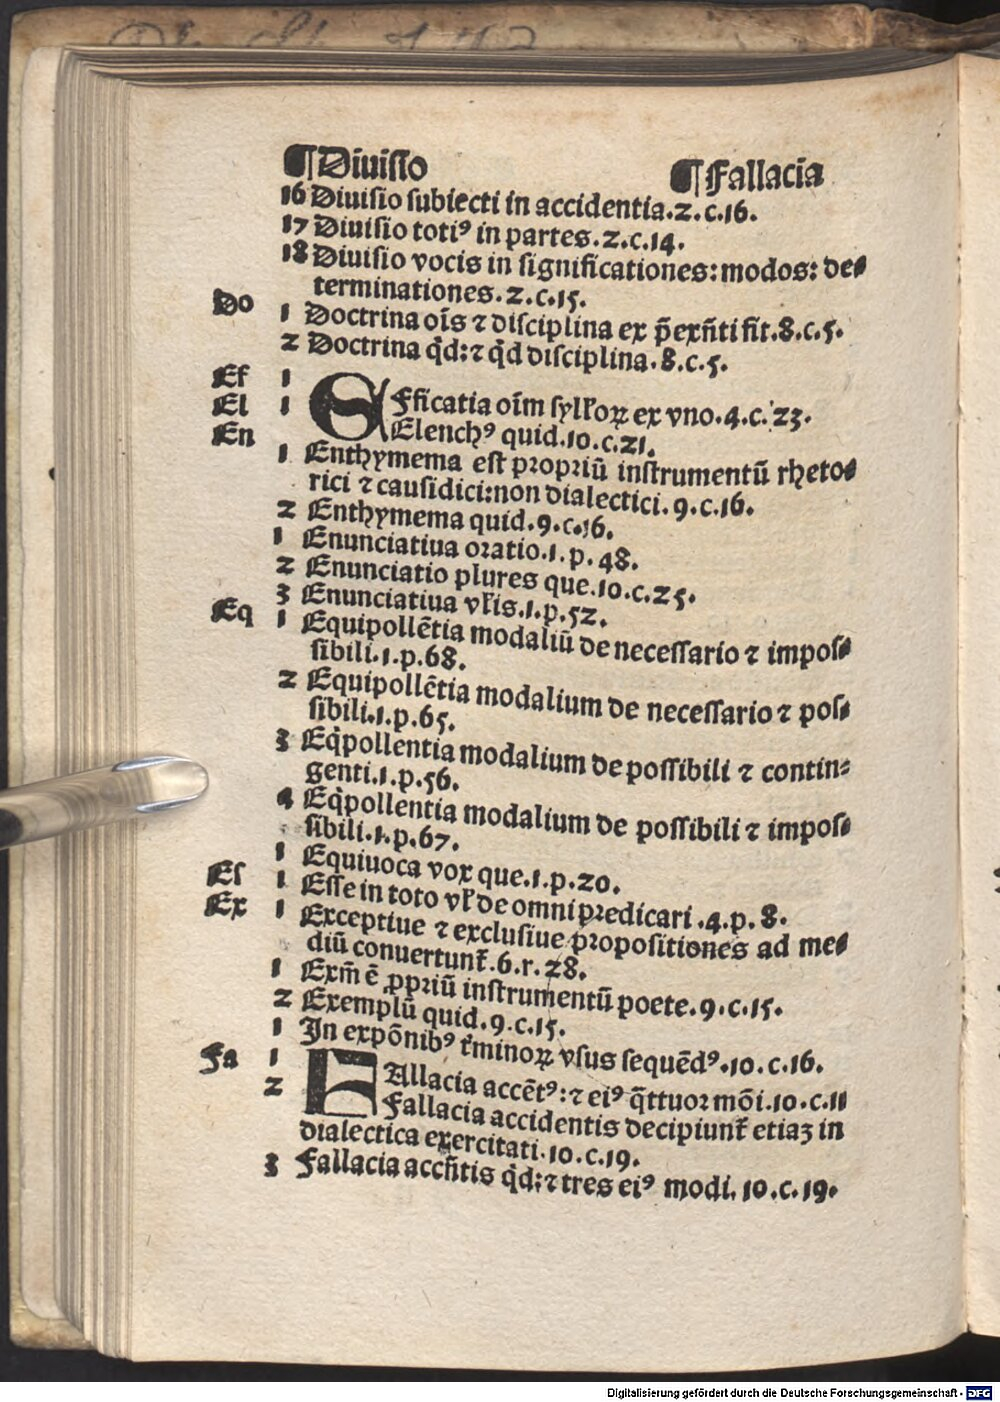 ¶Diuisio ¶Fallacia
16 Diuisio subiecti in accidentia.2.c.16.
17 Diuisio totiꝰ in partes.2.c.14.
18 Diuisio vocis in significationes: modos: de⸗
terminationes.2.c.15.
Do 1 Doctrina oīs ⁊ disciplina ex p̄exn̄ti fit.8.c.5.
2 Doctrina qd̄: ⁊ qd̄ disciplina.8.c.5.
Ef 1 EFficatia oīm syll'oꝝ ex vno.4.c.23.
El 1 Elenchꝰ quid.10.c.21.
En 1 Enthymema est propriū instrumentū rheto⸗
rici ⁊ causidici: non dialectici.9.c.16.
2 Enthymema quid.9.c.16.
1 Enunciatiua oratio.1.p.48.
2 Enunciatio plures que.10.c.25.
3 Enunciatiua vl'is.1.p.52.
Eq 1 Equipollētia modaliū de necessario ⁊ impos⸗
sibili.1.p.68.
2 Equipollētia modalium de necessario ⁊ pos⸗
sibili.1.p.65.
3 Eq̇pollentia modalium de possibili ⁊ contin⸗
genti.1.p.56.
4 Eq̇pollentia modalium de possibili ⁊ impos⸗
sibili.1.p.67.
1 Equiuoca vox que.1.p.20.
Es 1 Esse in toto vl' de omni predicari.4.p.8.
Ex 1 Exceptiue ⁊ exclusiue propositiones ad me⸗
diū conuertunt̄.6.r.28.
1 Exm̄ ē ꝓpriū instrumentū poete.9.c.15.
2 Exemplū quid.9.c.15.
1 In expōnibꝰ t̄minoꝝ vsus sequēdꝰ.10.c.16.
Fa 1 FAllacia accētꝰ: ⁊ eiꝰ q̄ttuor mōi.10.c.11
2 Fallacia accidentis decipiunt̄ etiaȝ in
dialectica exercitati.10.c.19.
3 Fallacia accn̄tis qd̄: ⁊ tres eiꝰ modi.10.c.19.
Digitalisierung gefördert durch die Deutsche Forschungsgemeinschaft - DFG